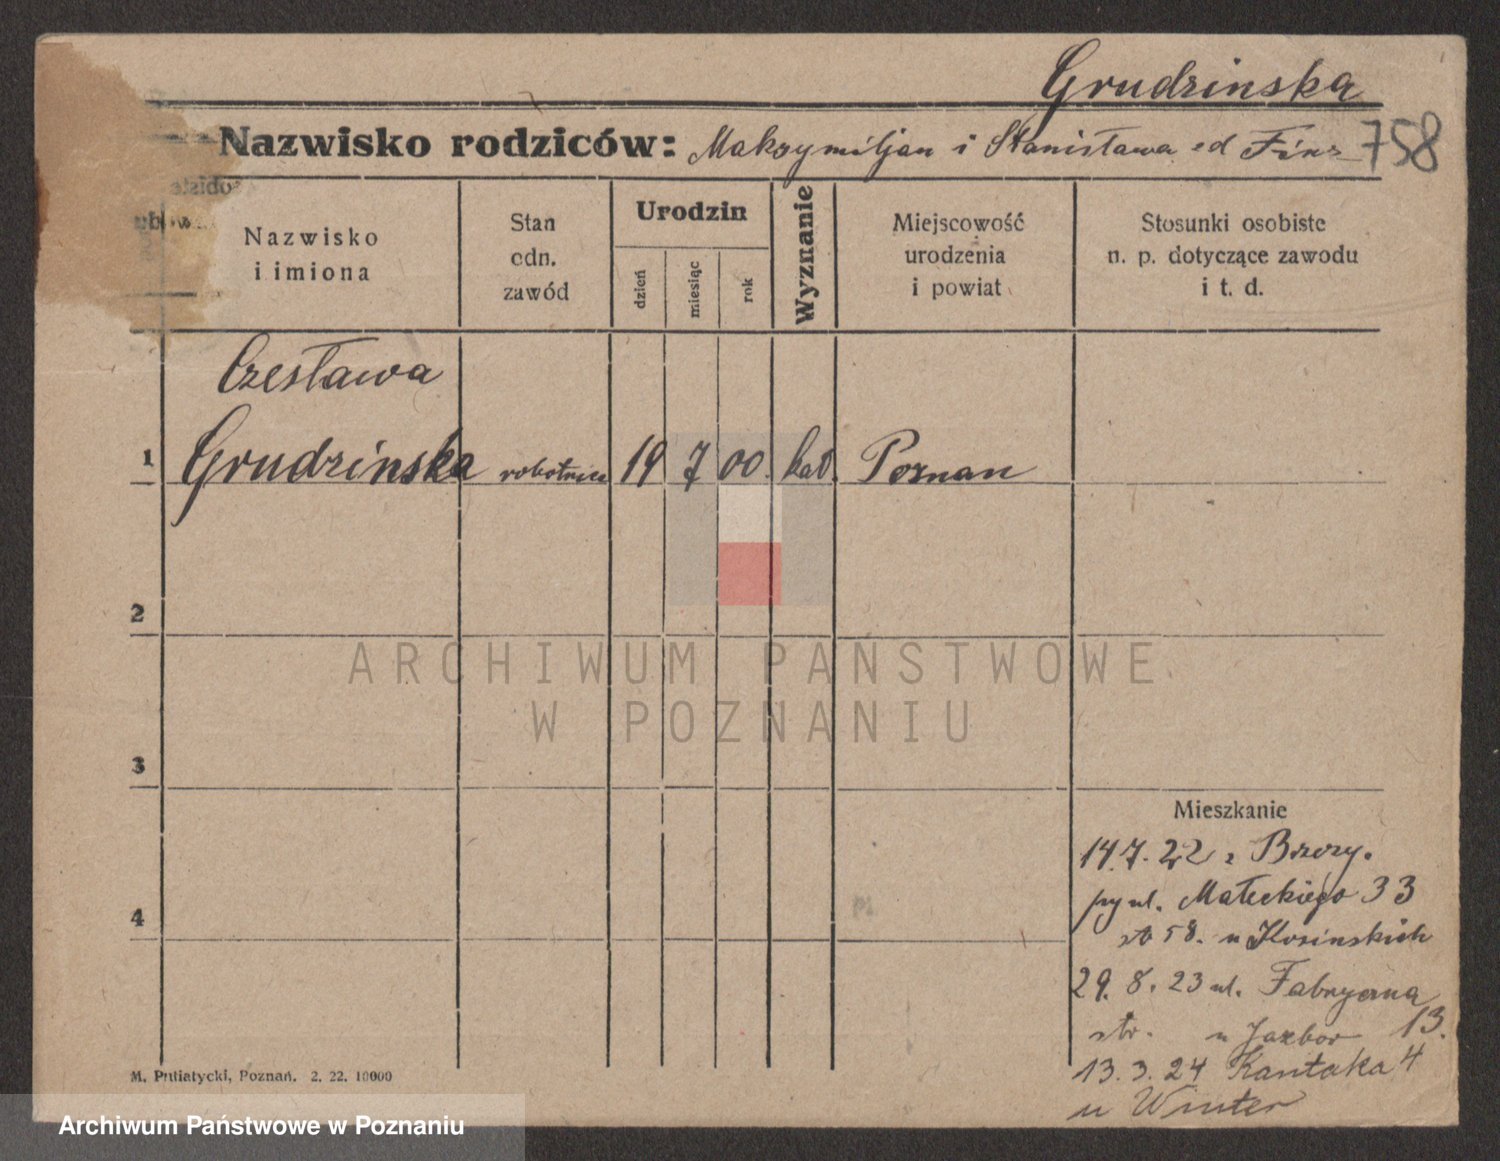 Grudzinska
Nazwisko rodziców: Maksymiljan i Stanisława
758
Nazwisko
i imiona
Stan
odn.
zawód
Urodzin
dzień
miesiąc
rok
Wyznanie
Miejscowość
urodzenia
i powiat
Stosunki osobiste
n. p. dotyczące zawodu
i t. d.
Czesława
1 Grudzinska robotnica 19 7 00 kat. Poznan
2
ARCHIWUM PAŃSTWOWE
W POZNANIU
3
Mieszkanie
14.7.22 z Brzozy.
ul. Małeckiego 33
4
58. u
29.8.23 ul. Fabryczna
13.
u
13.3.24 Kantaka 4
u Winter
M. Putiatycki, Poznań. 2. 22. 10000
Archiwum Państwowe w Poznaniu